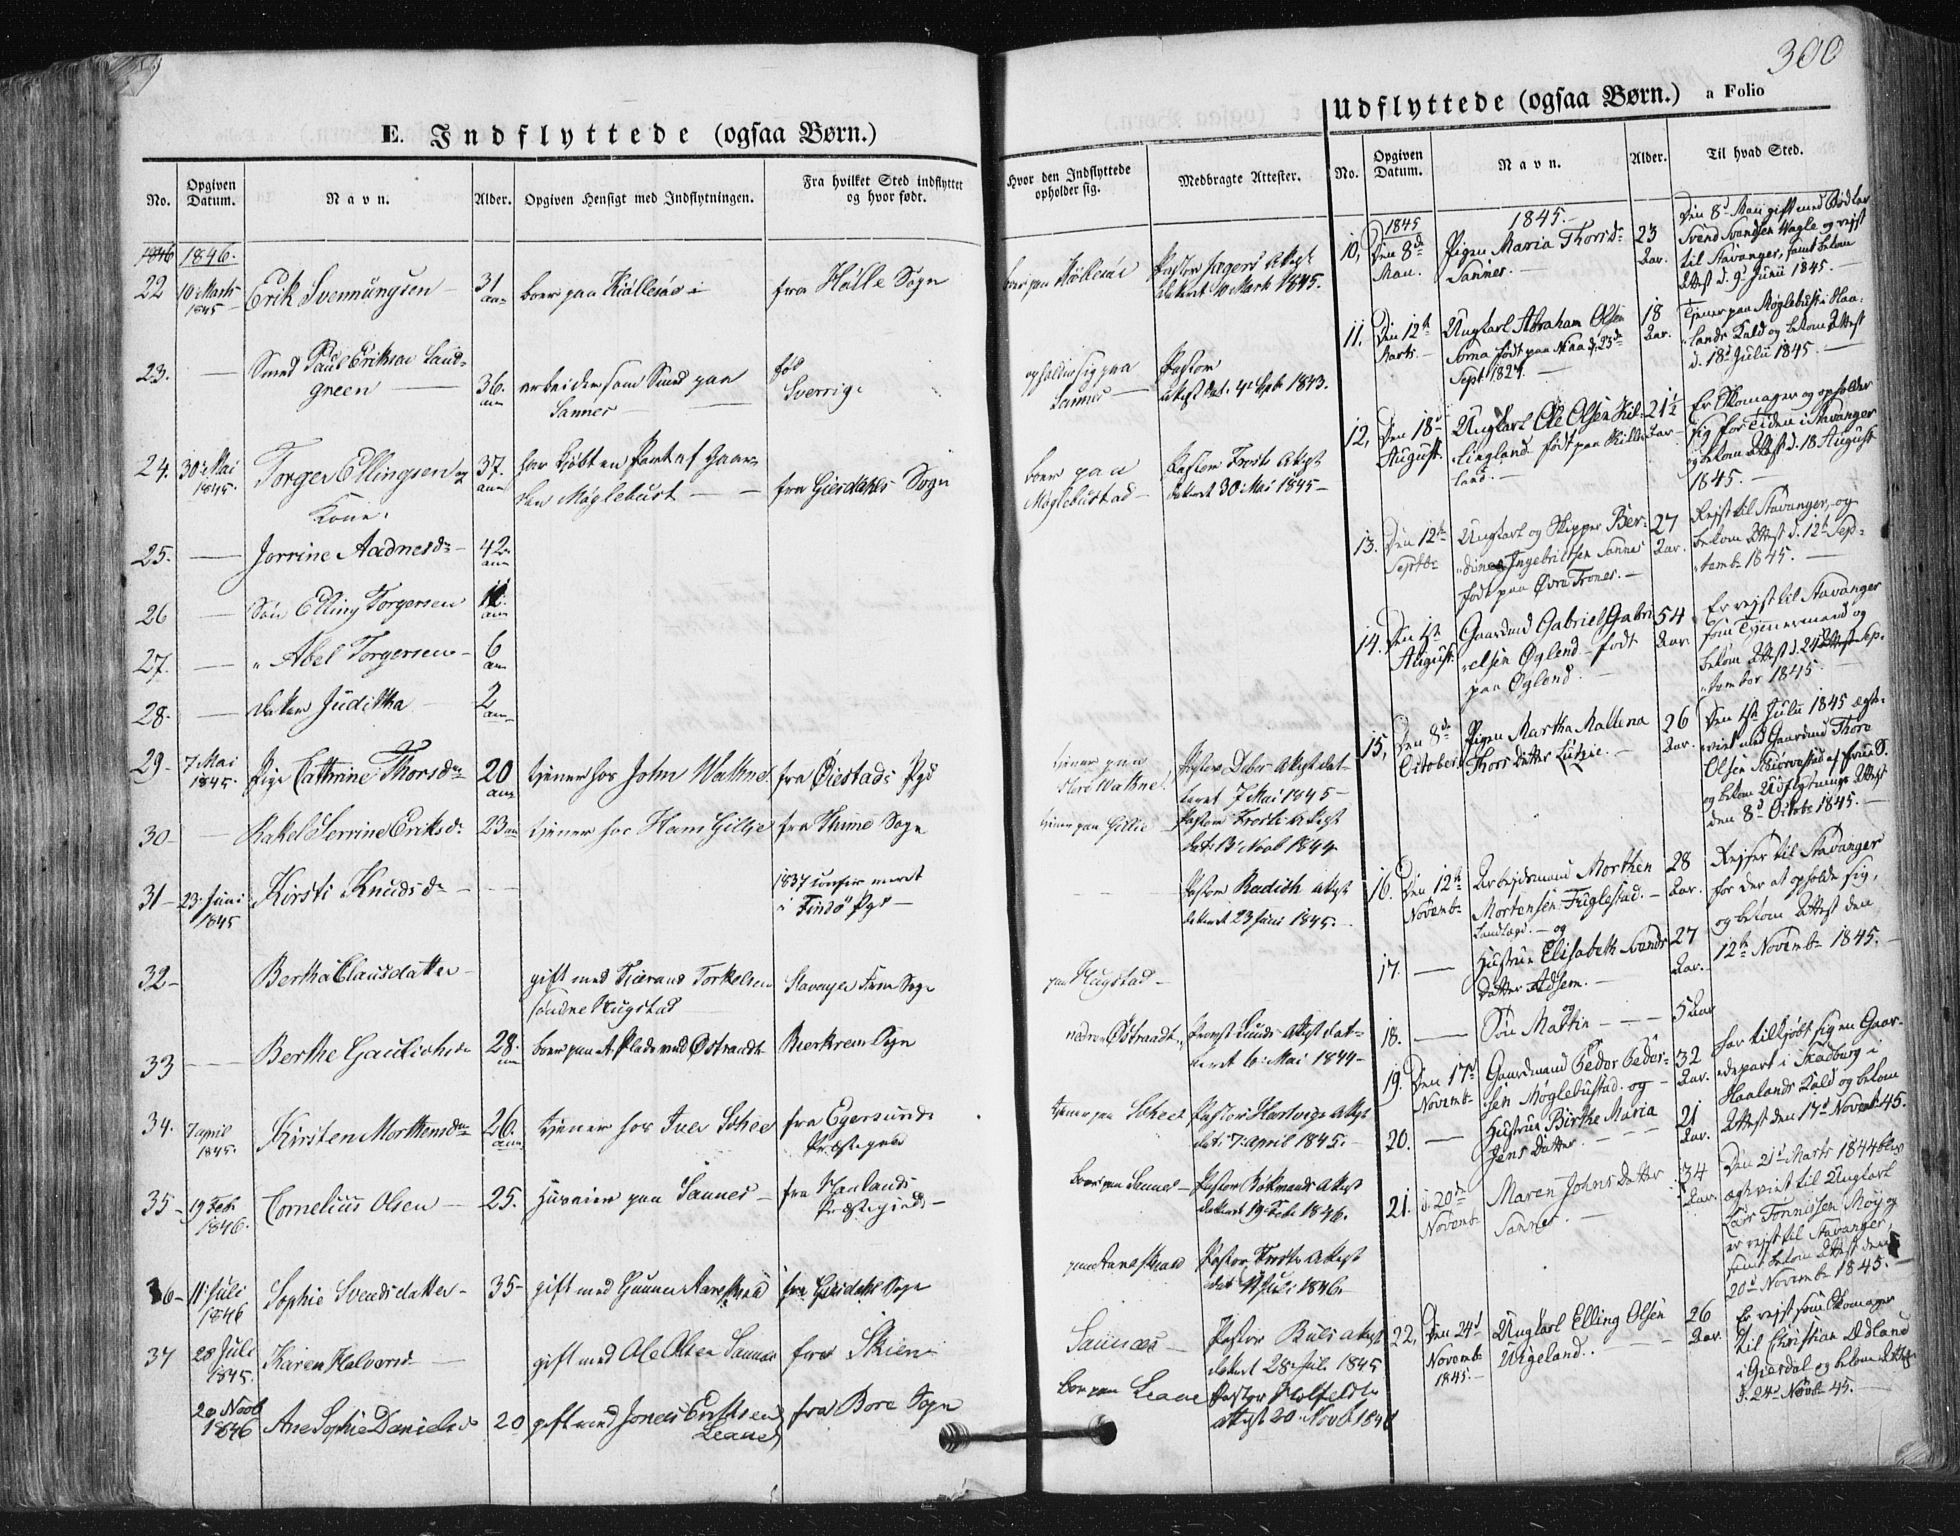 300
E. Indflyttede (ogsaa Børn.)
No.
Opgiven Datum.
Navn.
Alder.
Opgiven Hensigt med Indflytningen.
Fra hvilket Sted indflyttet og hvor født.
Hvor den Indflyttede opholder sig.
Medbragte Attester.
1846 1846.
22 10 Marts 1845 Erik Svennungsen 31 aar boer paa fra Holle Sogn
boer paa Pastor Attest
dateret 10 Marts 1845.
23. Smed Paul Eriksen Sand-
green 36. aar arbeider som Smed paa Sannes
fød Sverrige
opholder sig paa Sannes
Pastor
Attest dat. 4 1843.
24. 30 Mai 1845. Torger Ellingsen og 37. aar har kjøbt en Part af Gaar-
den Møglebust fra Giesdahls Sogn
Kone.
boer paa Møglebustad
Pastor Attest
dateret 30 Mai 1845
25. Jorrine Aadnesdr 42 aar
26 Søn Elling Torgersen 11. aar
27. " Abel Torgersen 6 aar
28. Datter Juditha 2 aar
29- 7 Mai 1845 Pige Cathrine Thorsdr 20 aar tjener hos John Wathne fra Øiestads Pgd
tjener paa Wathne
Pastor Attest dat-
teret 7 Mai 1845
30- Rakel Serrine Eriksdr 23 aar tjener hos Hans Giltje fra Thime Sogn
tjener paa Giltje
Pastor Attest
dat. 13 Novb 1844
31- 23 Juni 1845 Kirsti Knudsdr
1837 confirmeret
i Findø Pgd
Pastor Radich Attest
dateret 23 Juni 1845.
32- Bertha Clausdatter gift med Torkelsen
søndre Hugstad
Stavanger Frue Sogn
paa Hugstad
33 Berthe 28. aar boer paa et Plads ved Østraadt Bierkrem Sogn
nedre Østraadt
Provst Attest dat-
teret 6. Mai 1844
34. 7 April 1845. Kirsten Morthensdr 26. aar tjener hos Iver fra Egersunds
Præstegield
tjener paa
Pastor Hartvigs Attest
dat. 7. April 1845.
35- 19 Feb. 1846. Cornelius Olsen 25. Huseier paa Sannes fra Haalands
Præstegield
boer paa Sannes
Pastor Attest
dateret 19 Feb. 1846.
36- 11 Juli 1846 Sophie Svendsdatter 35- gift med Gunner fra Giesdahls Sogn
Pastor Attest
dat. 11 Juli 1846.
37 28 Juli 1845. Karen Halvorsdr gift med Ole Olsen Sannes fra Skien
Sannes
Pastor Attest
dateret 28 Juli 1845
20 Novb 1846 Ane Sophie Danielsdr 20 gift med Jonas Eriksen
Leane fra Bore Sogn
boer paa Leane
Pastor
Attest 20. Novb 1846
Udflyttede (ogsaa Børn.) a Folio
No.
Opgiven Datum.
Navn.
Alder.
Til hvad Sted.
1845 1845.
10, Den 8de Mai. Pigen Maria Thorsdr
Sannes. 23 Aar.
Den 8d Maii gift med Bødker
Svend Svendsen Vagle og rejst
til Stavanger, samt bekom
Attest d. 9d Junii 1845.
11. Den 12te Marts. Ungkarl Abraham Olsen
Sørnæ født paa d. 23de
Sept. 1827. 18 Aar.
Tjener paa Møglebust i Haa-
lands Kald og bekom Attest
d. 18d Julii 1845.
12, Den 18d August. Ungkarl Ole Olsen Kil-
lingland født paa Killing-
land. 21 1/2 Aar
Er Skomager og opholder
sig for Tiden i Stavanger
og bekom Attest d. 18 August
1845.
13. Den 12te Septbr Ungkarl og Skipper Ber-
Ingebritsen Sannes
født paa Øvre Trones. 27 Aar.
Rejst til Stavanger, og
bekom Attest d. 12te Sep-
temb. 1845.
14. Den 1te August. Gaardmd Gabriel Gabri-
elsen Øglend født
paa Øglend. 54 Aar.
Er rejst til Stavanger
som Tjennermand og
bekom Attest d. 24d Sep-
tember 1845.
15, Den 8de October Pigen Martha Mallena
Thors Datter Lutsie. 26 Aar.
Den 1te Julii 1845 ægte-
viet med Gaardmd Thore
Olsen af Frue S.
og bekom Udflytnings Attest
den 8d Octobr 1845.
16. Den 12te Novembr Arbejdsmand Morthen
Mortensen Fuglestad.
og 28 Aar.
Rejser til Stavanger
for der at opholde sig,
og bekom Attest den
12te Novembr 1845.
17. Hustrue Elisabeth Svends
Datter Adsem. 27 Aar.
og
18. Søn Martin 5 Aar
19. Den 17d Novembr Gaardmand Peder Peder-
sen Møglebustad. og 32 Aar.
har tilkjøbt sig en Gaar-
depart i Skadberg i
Haalands Kald og bekom
Attest den 17d Novembr 45.
20. Hustrue Birthe Maria
Jens Datter. 21 Aar.
21. d. 20de Novembr Maren Johns Datter
Sannes. 34 Aar.
Den 21d Marts 1844 blev
ægteviet til Ungkarl
Lars Tønnissen Møy og
er rejst til Stavanger,
samt bekom Attest den
20d Novembr 1845.
22, Den 24d Novembr 1845. Ungkarl Elling Olsen
Uigeland. 26 Aar.
Er rejst som Skomager
til Christian Ædland
i Giesdal og bekom Attest
d. 24d Novbr 45.